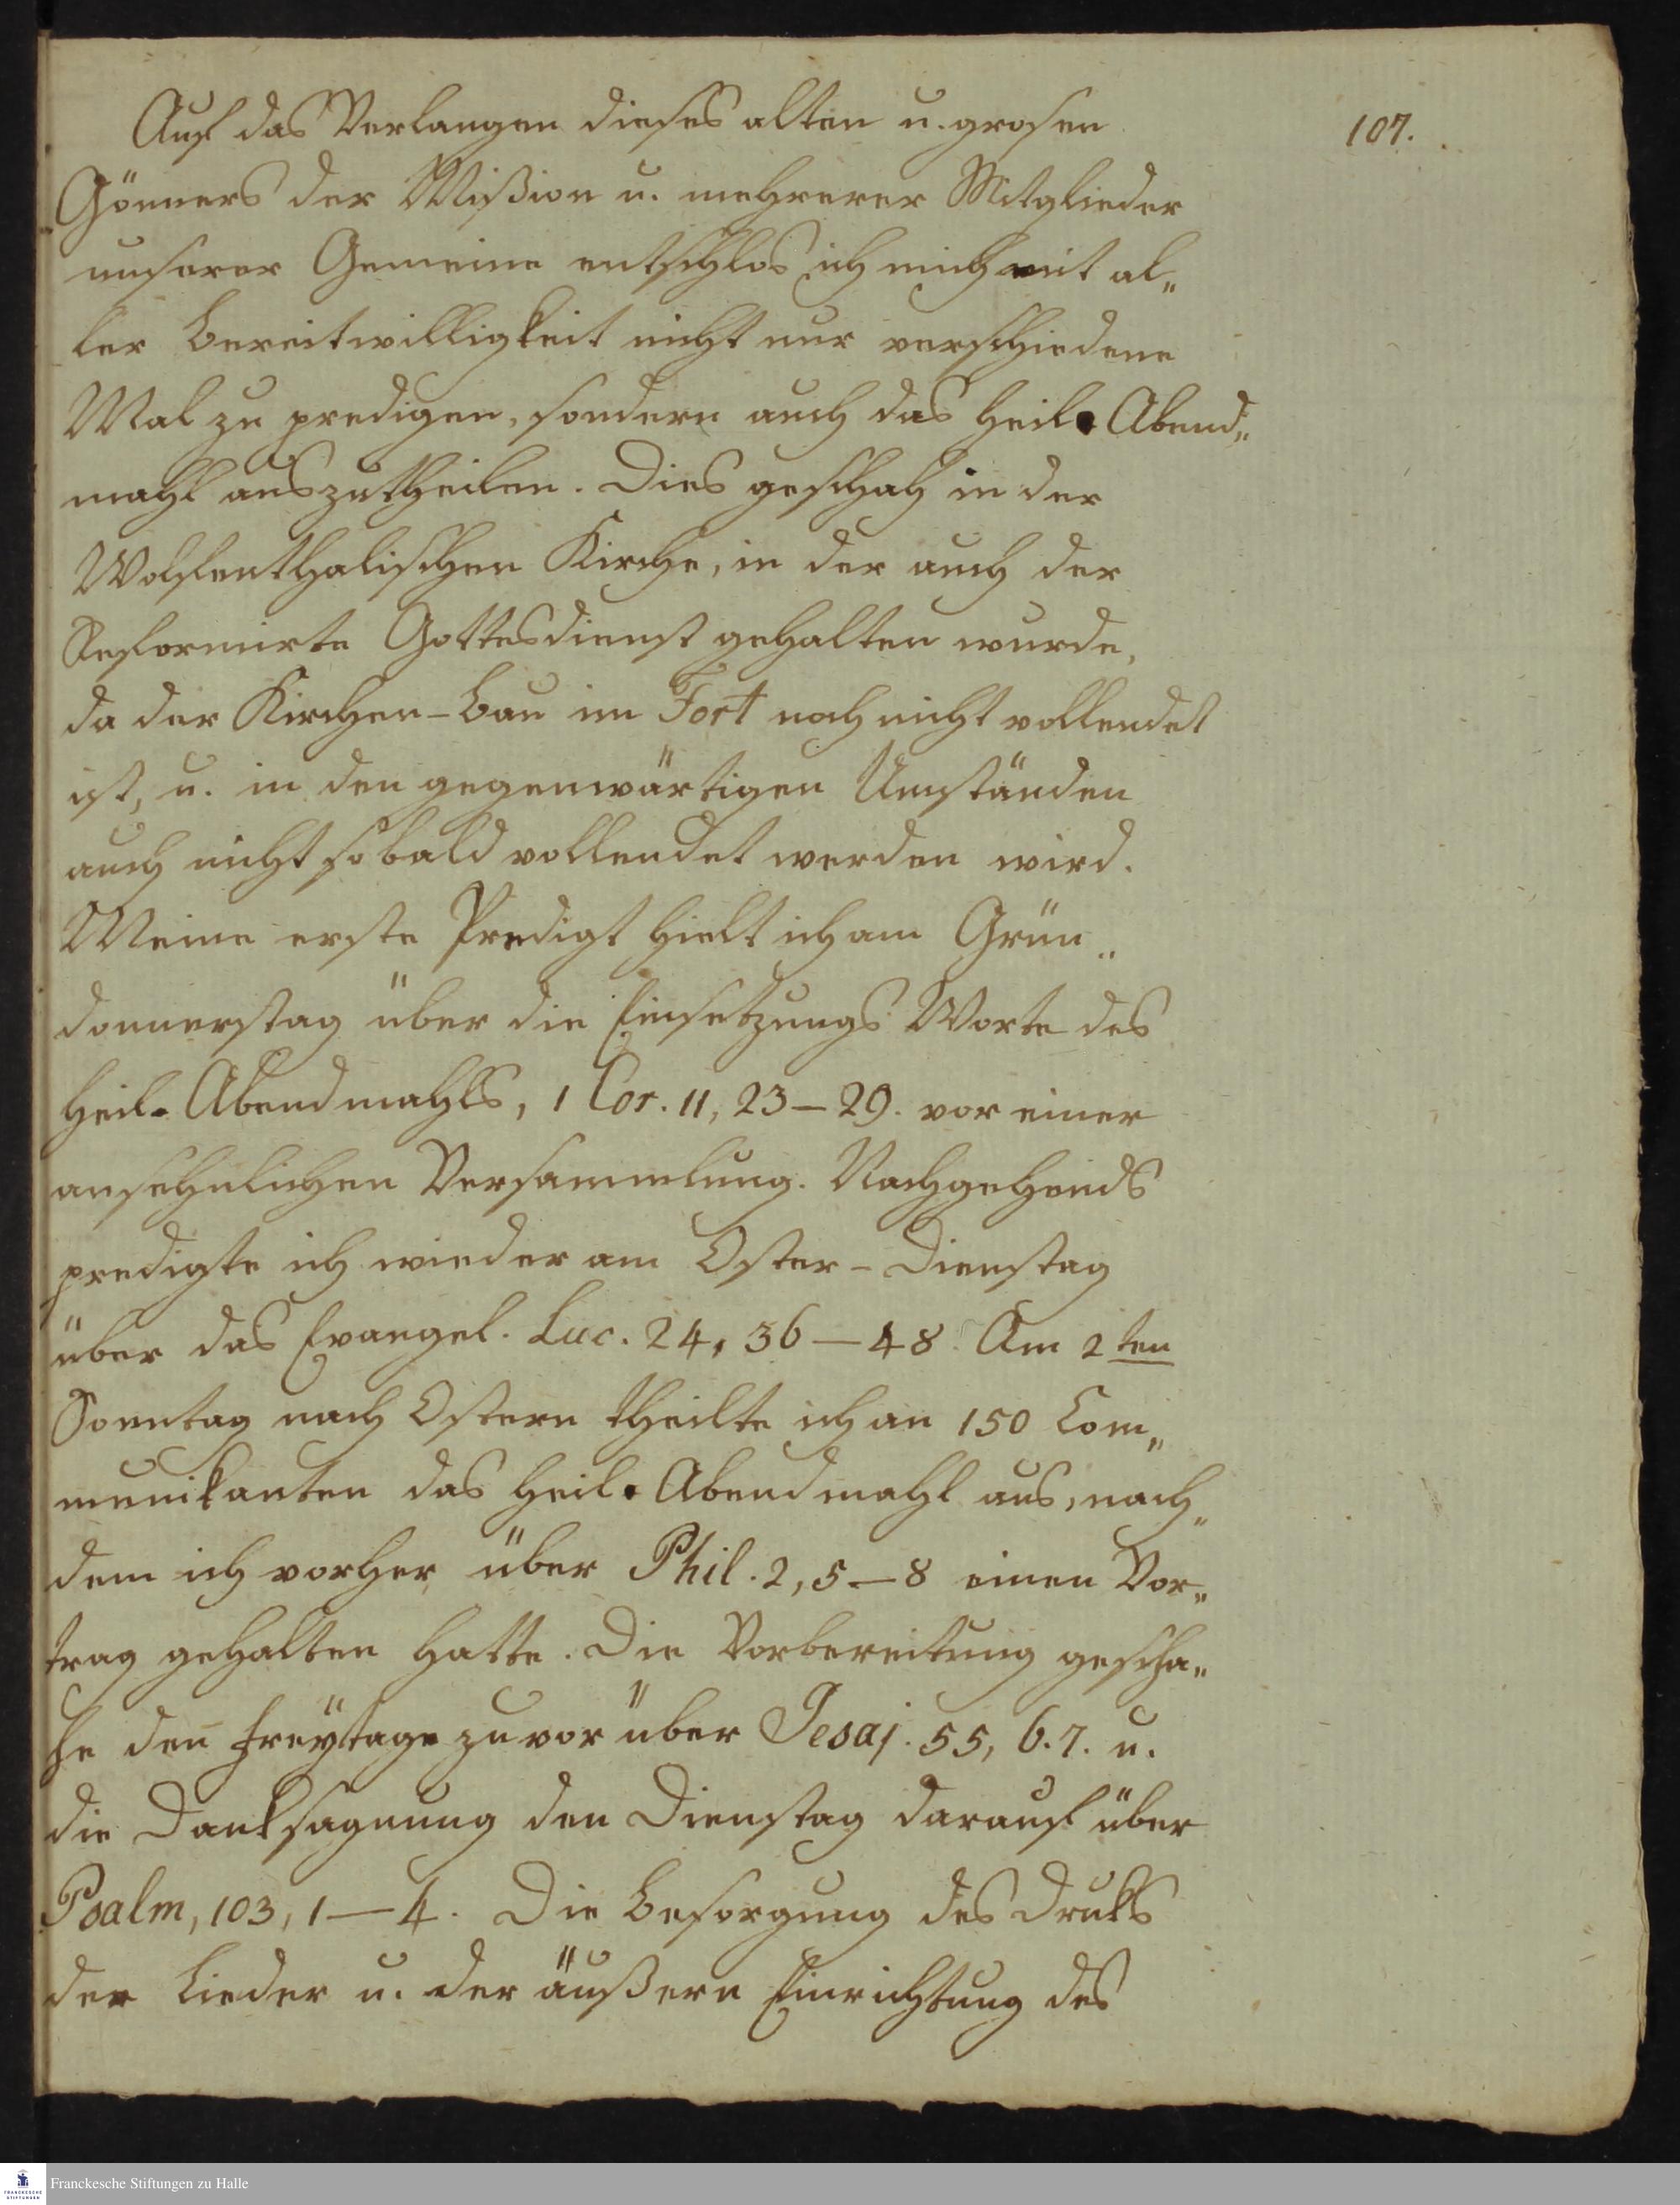 107.
Auf das Verlangen dieses alten u. grosen
Gönners der Mißion u. mehrerer Mitglieder
unserer Gemeine entschlos ich mich mit al„
ler Bereitwilligkeit nicht nur verschiedene
Mal zu predigen, sondern auch das heil. Abend„
mahl auszutheilen. Dies geschah in der
Wolfenthalischen Kirche, in der auch der
Reformirte Gottesdienst gehalten wurde,
da der Kirchen-Bau im Fort noch nicht vollendet
ist, u. in den gegenwärtigen Umständen
auch nicht sobald vollendet werden wird.
Meine erste Predigt hielt ich am Grün„
donnerstag über die Einsetzungs Worte des
heil. Abendmahls, 1 Cor. 11, 23–29. vor einer
ansehnlichen Versammlung. Nachgehends
predigte ich wieder am Oster-Dienstag
über das Evangel. Luc. 24, 36–48. Am 2ten
Sonntag nach Ostern theilte ich an 150 Com„
munikanten das heil. Abendmahl aus, nach„
dem ich vorher über Phil. 2, 5–8 einen Vor„
trag gehalten hatte. Die Vorbereitung gescha„
he den Freÿtage zuvor über Jesaj. 55, 6.7. u.
die Danksagung den Dienstag darauf über
Psalm, 103, 1–4. Die Besorgung des Druks
der Lieder u. der äußern Einrichtung des
Franckesche Stiftungen zu Halle
FRANCKESCHE
STIFTUNGEN